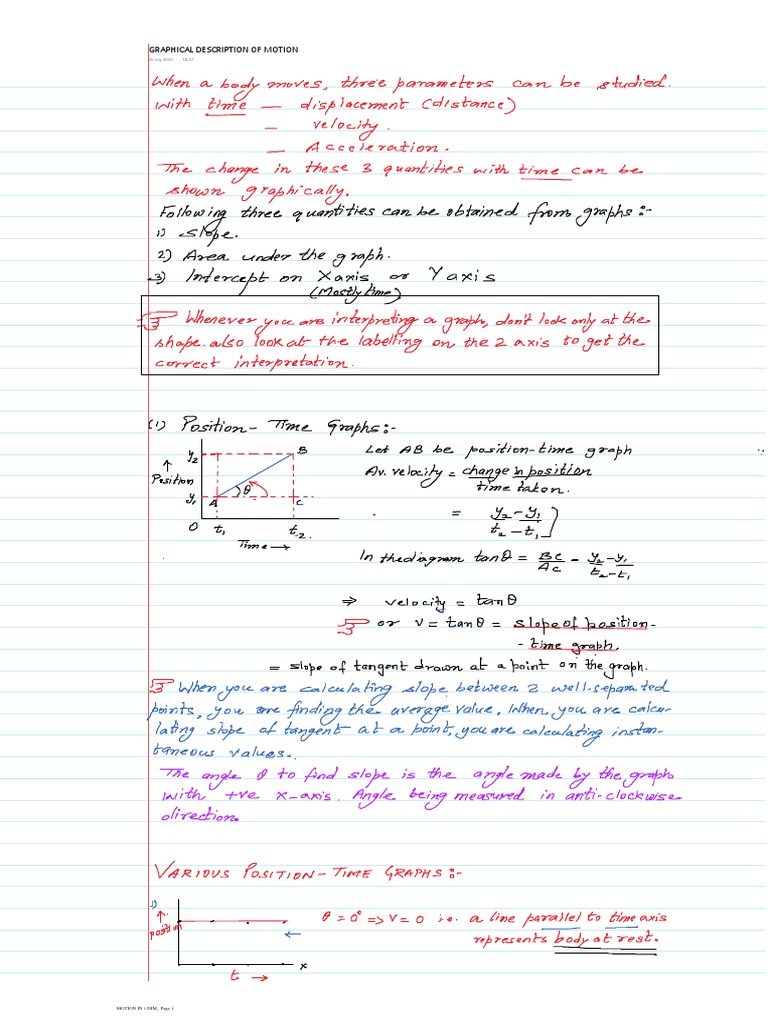 GRAPHICAL DESCRIPTION OF MOTION
July 2020 18:37
When a body moves, three parameters can be studied.
with time — displacement (distance)
— velocity.
— Acceleration.
The change in these 3 quantities with time can be
shown graphically.
Following three quantities can be obtained from graphs:-
1) Slope.
2) Area under the graph.
3) Intercept on X axis or Y axis
(Mostly time)
Whenever you are interpreting a graph, don't look only at the
shape. also look at the labelling on the 2 axis to get the
correct interpretation.
(1) Position - Time Graphs:-
y₂ B Let AB be position-time graph
↑
Position
Av. velocity = change in position
time taken.
θ
y₁ A C
= y₂-y₁
t₂-t₁
O t₁ t₂.
Time →
In the diagram tanθ = BC/AC = y₂-y₁/t₂-t₁
⇒ velocity = tanθ
or v = tanθ = slope of position-
- time graph
= slope of tangent drawn at a point on the graph.
When you are calculating slope between 2 well-separated
points, you are finding the average value. When you are calcu-
lating slope of tangent at a point, you are calculating instan-
taneous values..
The angle θ to find slope is the angle made by the graph
with +ve x-axis. Angle being measured in anti-clockwise
direction.
VARIOUS POSITION - TIME GRAPHS:-
1)
↑
position
θ = 0° => V = 0 i.e. a line parallel to time axis
represents body at rest.
←
x
t →
MOTION IN 1 DIM_ Page 1